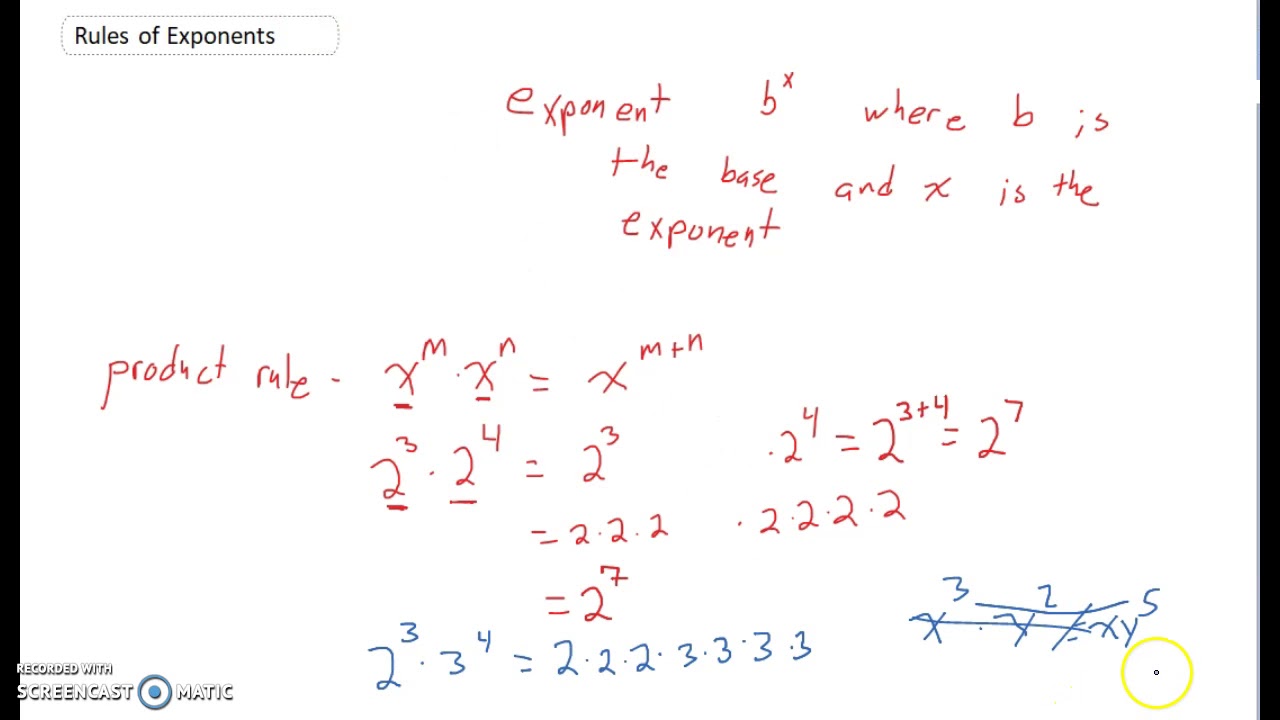 Rules of Exponents
exponent b^x where b is
the base and x is the
exponent
product rule - x^m · x^n = x^(m+n)
2^3 · 2^4 = 2^3 · 2^4 = 2^(3+4) = 2^7
= 2·2·2 · 2·2·2·2
= 2^7
2^3 · 3^4 = 2·2·2·3·3·3·3
RECORDED WITH
SCREENCAST MATIC